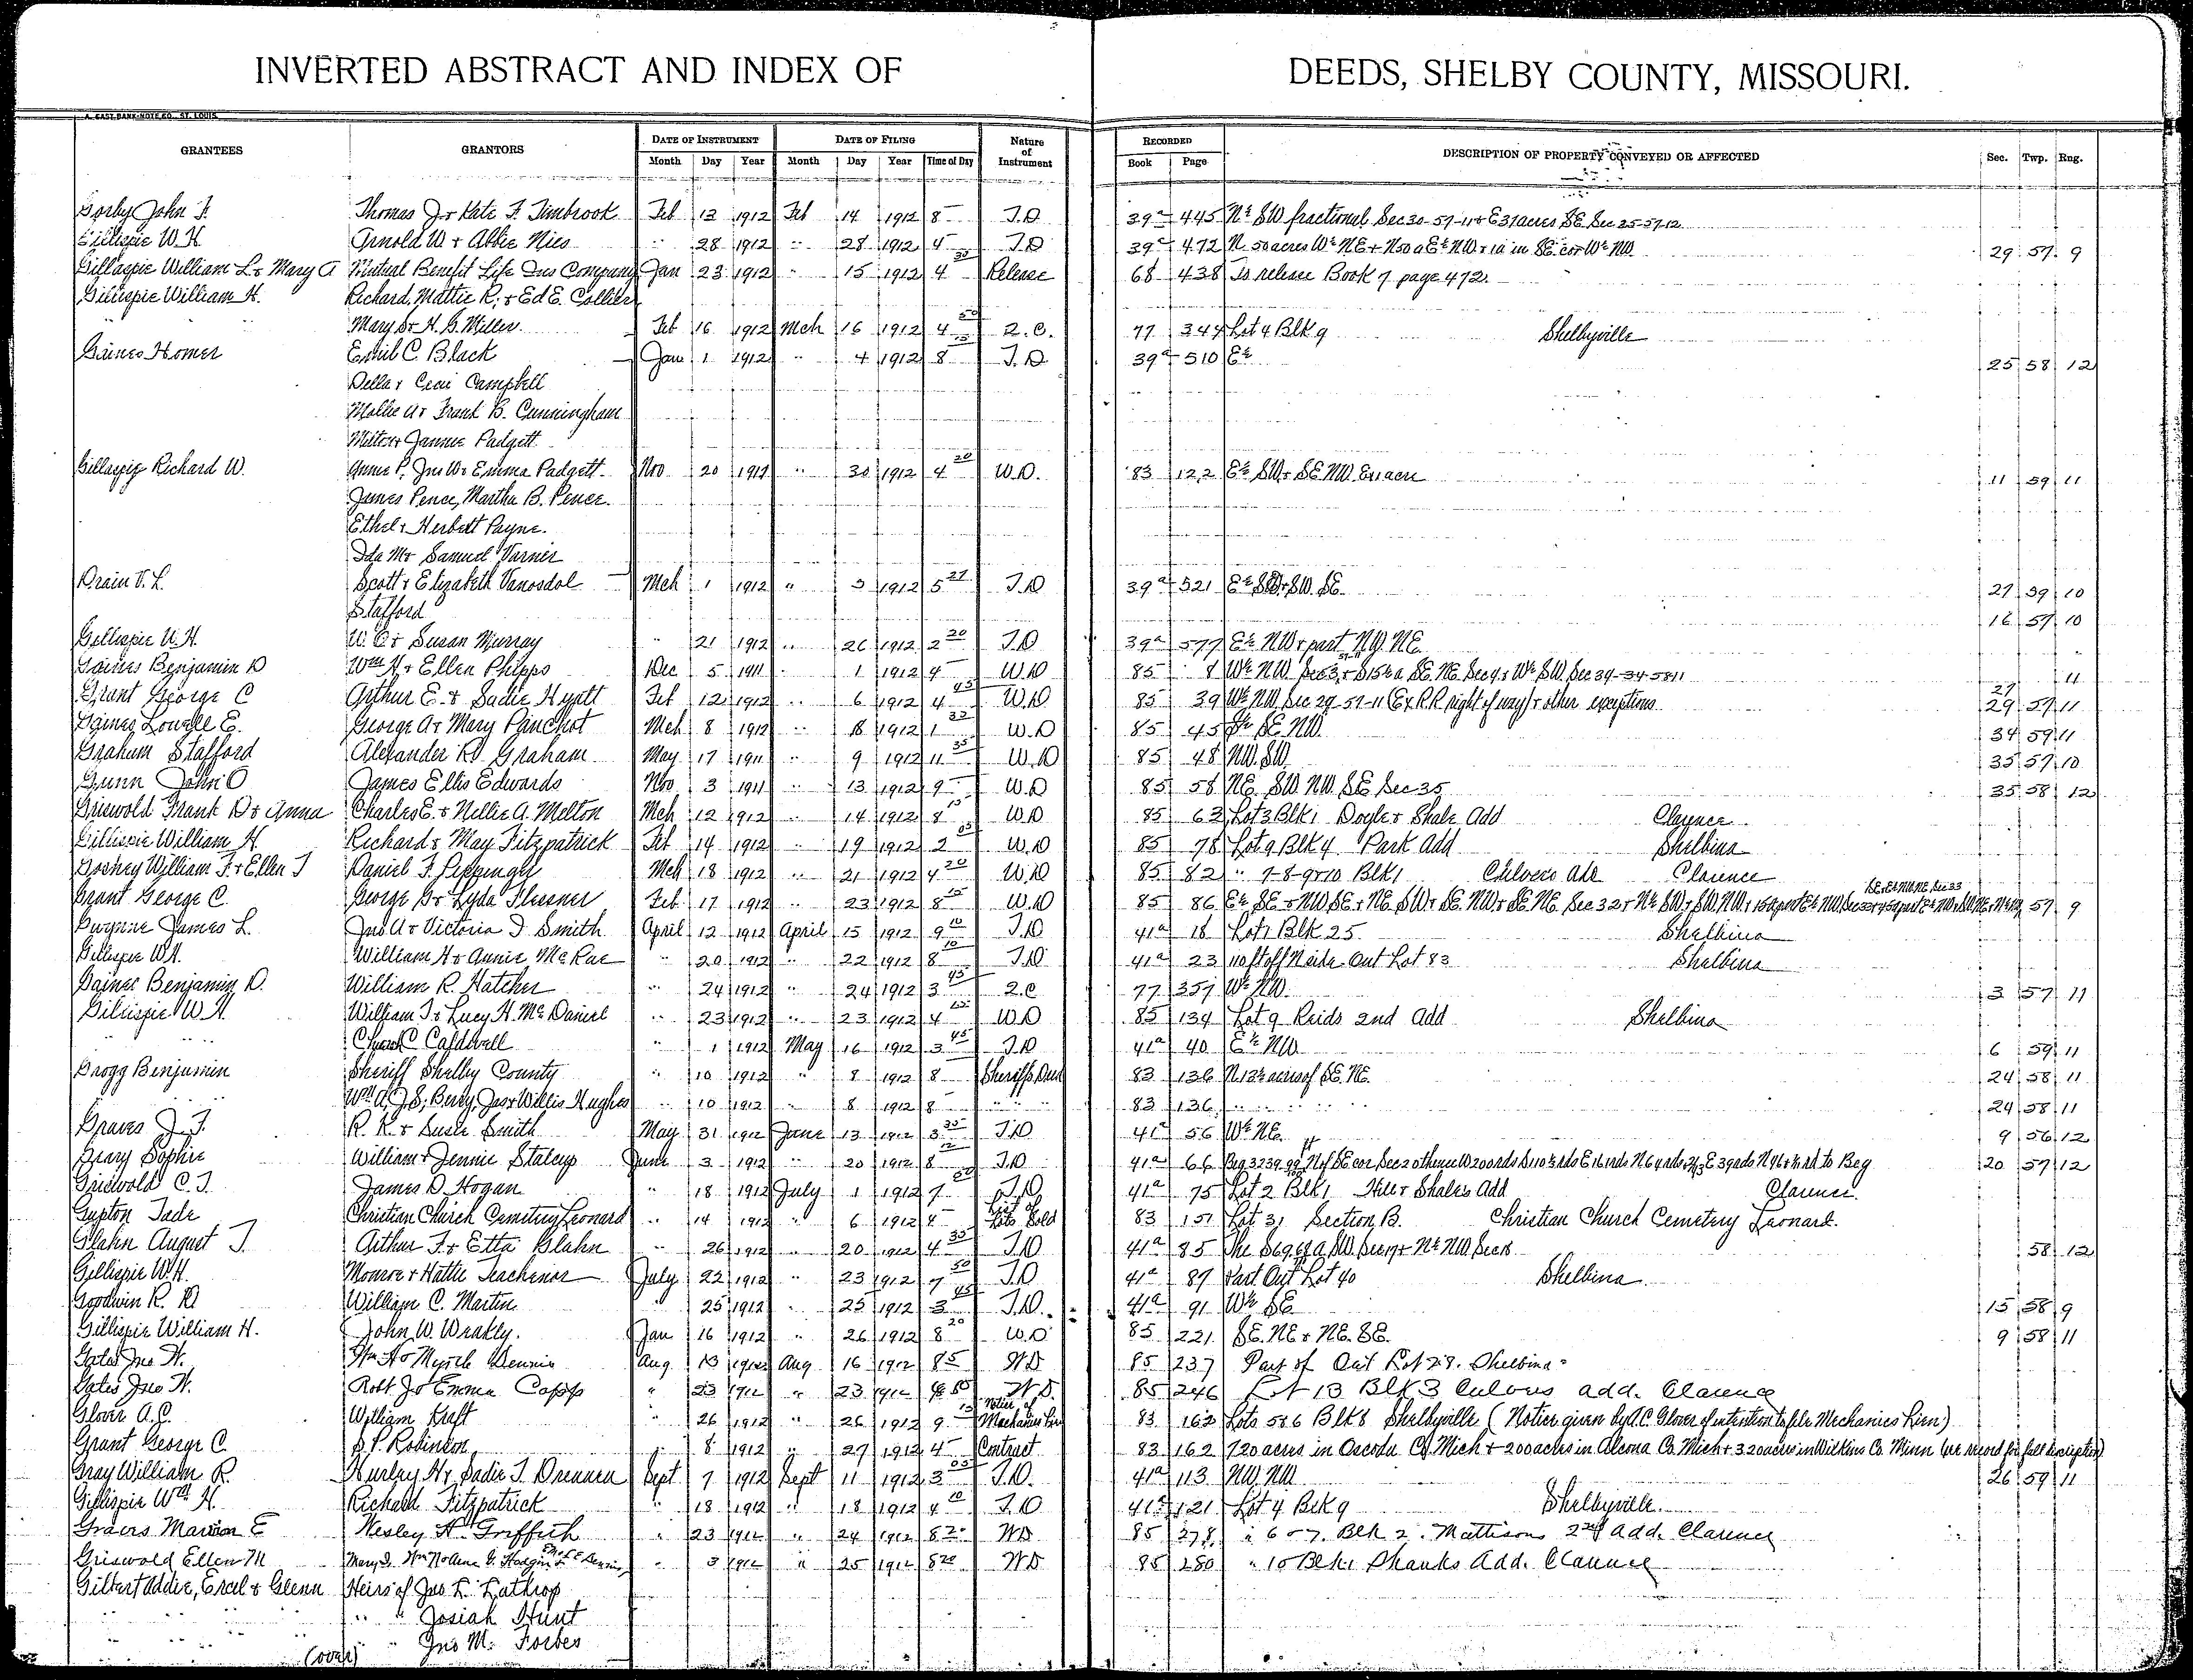 INVERTED ABSTRACT AND INDEX OF DEEDS, SHELBY COUNTY, MISSOURI.
A. GAST BANK NOTE CO., ST. LOUIS.
GRANTEES GRANTORS DATE OF INSTRUMENT DATE OF FILING Nature of Instrument RECORDED DESCRIPTION OF PROPERTY CONVEYED OR AFFECTED Sec. Twp. Rng.
Month Day Year Month Day Year Time of Day Book Page
Gorby John F. Thomas J. + Kate F. Timbrook Feb 13 1912 Feb 14 1912 8 T.D 39a 445 N½ SW fractional Sec 30-57-11 + E 31 acres SE Sec 25-57-12
Gillispie W.H. Arnold W + Abbie Nies " 28 1912 " 28 1912 4 T.D 39a 472 N 50 acres W½ NE + N 50 a E½ NW + 1a in SE cor W½ NW 29 57 9
Gillaspie William L. + Mary A Mutual Benefit Life Ins Company Jan 23 1912 " 15 1912 4 30 Release 68 438 To release Book 7 page 472.
Gillispie William H. Richard, Mattie R. + Ed E. Collier
Mary S + H. G. Miller. Feb 16 1912 Mch 16 1912 4 50 Q.C. 77 344 Lot 4 Blk 9 Shelbyville
Gaines Homer Emil C. Black Jan 1 1912 " 4 1912 8 15 T.D. 39a 510 E½ 25 58 12
Della + Campbell
Mollie A + Frank B. Cunningham
Milton + Jannie Padgett
Gillaspie Richard W. Annie P. Jno W + Emma Padgett Nov 20 1911 " 30 1912 4 20 W.D. 83 122 E½ SW + SE NW Ex 1 acre 11 59 11
James Pence, Martha B. Pence.
Ethel + Herbert Payne.
Ida M + Samuel Varner
Drain V. L. Scott + Elizabeth Vanosdol Mch 1 1912 " 3 1912 5 27 T.D 39a 521 E½ SW + SW SE 27 59 10
Stafford 16 57 10
Gillispie W. H. W. C + Susan Murray " 21 1912 " 26 1912 2 20 T.D 39a 577 E½ NW + part NW NE
Gaines Benjamin D Wm H + Ellen Phipps Dec 5 1911 " 1 1912 9 W.D 85 8 W½ NW Sec 3 + S 15½ a SE NE Sec 4 + W½ SW Sec 34-58-11 11
Grant George C Arthur E. + Sadie Hyatt Feb 12 1912 " 6 1912 4 45 W.D 85 39 W½ NW Sec 29-57-11 (Ex R.R right of way) + other exceptions 29 57 11
Gaines Lowell E. George A + Mary Panchot Mch 8 1912 " 18 1912 1 32 W.D 85 45 S½ SE NW 34 59 11
Graham Stafford Alexander R. Graham May 17 1911 " 9 1912 11 35 W.D 85 48 NW. SW. 35 57 10
Gunn John O James Ellis Edwards Nov 3 1911 " 13 1912 9 W.D 85 58 NE. SW. NW. SE Sec 35 35 58 12
Griswold Frank D + Anna Charles E. + Nellie A. Melton Mch 12 1912 " 14 1912 8 15 W.D 85 62 Lot 3 Blk 1 Doyle + Shale Add Clarence
Gillispie William H. Richard + May Fitzpatrick Feb 14 1912 " 19 1912 2 05 W.D 85 78 Lot 9 Blk 4 Park Add Shelbina
William F. + Ellen T Daniel F. Pippinger Mch 18 1912 " 21 1912 4 20 W.D 85 82 " 7-8-9 + 10 Blk 1 Culvers Add Clarence
Grant George C. George G + Lyda Flessner Feb 17 1912 " 23 1912 8 15 W.D 85 86 E½ SE + NW SE + NE SW + SE NW + SE NE Sec 32 + N½ SW + SW NW + 57 9
Gwynne James L. Jno A + Victoria I Smith April 12 1912 April 15 1912 9 10 T.D 41a 18 Lot 1 Blk 25 Shelbina
Gillispie W.H. William H + Annie McRae " 20 1912 " 22 1912 8 10 T.D 41a 23 110 ft off N side Out Lot 83 Shelbina
Gaines Benjamin D. William R. Hatcher " 24 1912 " 24 1912 3 45 Q.C 77 357 W½ NW. 3 57 11
Gillispie W H. William T + Lucy H. McDaniel " 23 1912 " 23 1912 4 W.D 85 134 Lot 9 Reids 2nd Add Shelbina
" " C Caldwell " 1 1912 May 16 1912 3 45 T.D 41a 40 E½ NW 6 59 11
Grogg Benjamin Sheriff Shelby County " 10 1912 " 8 1912 8 Sheriffs Deed 83 136 N 13½ acres of SE. NE. 24 58 11
Wm A, J. S; Bevy, Jas + Willis Hughes " 10 1912 " 8 1912 8 " " 83 136 " " " 24 58 11
Graves J. T. R. R. + Susie Smith May 31 1912 June 13 1912 3 35 T.D 41a 56 W½ NE. 9 56 12
Geary Sophie William + Jennie Staleup June 3 1912 " 20 1912 8 12 T.D 41a 66 20 57 12
Griswold C. T. James D. Hogan " 18 1912 July 1 1912 7 T.D 41a 75 Lot 2 Blk 1 Hill + Shales Add Clarence.
Gupton Jade Christian Church Cemetery Leonard " 14 1912 " 6 1912 4 List of Lots Sold 83 151 Lot 31 Section B. Christian Church Cemetery Leonard.
Glahn August T. Arthur F. + Etta Glahn " 26 1912 " 20 1912 4 35 T.D 41a 85 + N½ NW Sec 18 58 12
Gillispie W.H. Monroe + Hattie Teachenor July 22 1912 " 23 1912 7 50 T.D 41a 87 Part Out Lot 40 Shelbina
Goodwin R. D William C. Martin " 25 1912 " 25 1912 3 45 T.D. 41a 91 W½ SE 15 58 9
Gillispie William H. John W. Weakly. Jan 16 1912 " 26 1912 8 20 W.D 85 221 SE. NE + NE. SE. 9 58 11
Gates Jno W. Wm A + Myrtle Dennis Aug 13 1912 Aug 16 1912 8 5 WD 85 237 Part of Out Lot 28. Shelbina
Gates Jno W. Robt J + Emma Capp " 23 1912 " 23 1912 WD. 85 246 Lot 13 Blk 3 Culvers add. Clarence
Glover A.C. William Kraft " 26 1912 " 26 1912 9 15 Notice of Mechanics Lien 83 162 Lots 5 + 6 Blk 8 Shelbyville (Notice given by A.C. Glover of intention to file Mechanics Lien)
Grant George C. S. P. Robinson " 8 1912 " 27 1912 4 Contract 83 162 720 acres in Oscoda Co. Mich + 200 acres in Alcona Co. Mich + 320 acres in Wilkins Co. Minn (see record for full description)
Gray William R. Hurley H + Sadie T. Drennen Sept 7 1912 Sept 11 1912 3 05 T.D. 41a 113 NW. NW 26 59 11
Gillispie Wm H. Richard Fitzpatrick " 18 1912 " 18 1912 4 10 T.D 41a 121 Lot 4 Blk 9 Shelbyville.
Graves Marion E Wesley H. Griffith " 23 1912 " 24 1912 8 20 WD 85 278 " 6 + 7. Blk 2. Mattisons 2nd add. Clarence
Griswold Ellen M " 3 1912 " 25 1912 8 20 WD 85 280 " 10 Blk 1 Shanks Add. Clarence
Gilbert Addie, Ercel + Glenn Heirs of Jno L. Lathrop
" " " " Josiah Hunt
" " " " Jno M. Forbes
(over)